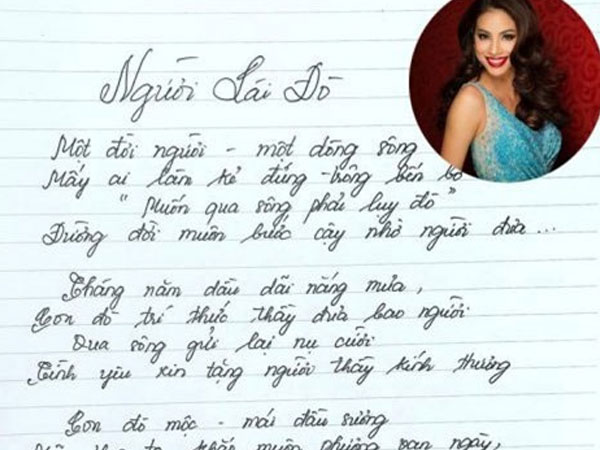 Người Lái Đò
Một đời người - một dòng sông
Mấy ai làm kẻ đứng trông bến bờ
"Muốn qua sông phải lụy đò"
Đường đời muôn bước cậy nhờ người đưa ...
Tháng năm dầu dãi nắng mưa,
Con đò trí thức thầy đưa bao người
Qua sông gửi lại nụ cười
Tình yêu xin tặng người thầy kính thương
Con đò mộc - mái đầu sương
khắc muôn phương vạn ngày,